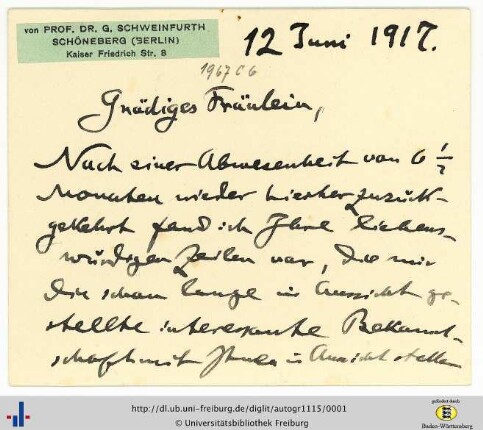 von PROF. DR. G. SCHWEINFURTH
SCHÖNEBERG (BERLIN)
Kaiser Friedrich Str. 8
12 Juni 1917.
1967 C 6
Gnädiges Fräulein,
Nach einer Abwesenheit von 6 1/2
Monaten wieder hierher zurück-
gekehrt fand ich Ihre liebens-
würdigen Zeilen vor, die mir
die schon lange in Aussicht ge-
stellte interessante Bekannt-
schaft mit Ihnen in Aussicht stellen
http://dl.ub.uni-freiburg.de/diglit/autogr1115/0001
© Universitätsbibliothek Freiburg
gefördert durch
Baden-Württemberg